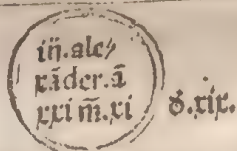 iñ.ale⸗
xãder.ã
xxi m̃.xi
d.xix.